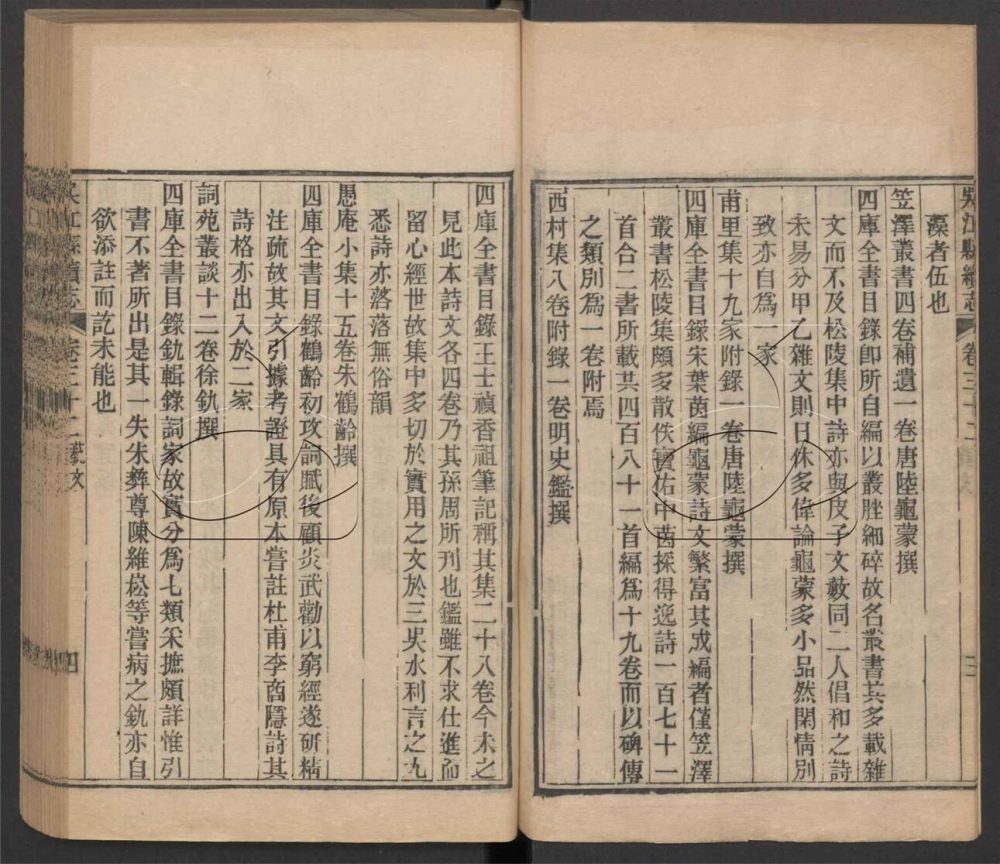 吳江縣續志
卷三十二
三
藻者伍也
笠澤叢書四卷補遺一卷唐陸龜蒙撰
四庫全書目錄卽所自編以叢脞細碎故名叢書其多載雜
文而不及松陵集中詩亦與皮子文藪同二人倡和之詩
未易分甲乙雜文則日休多偉論龜蒙多小品然閑情別
致亦自爲一家
甫里集十九家附錄一卷唐陸龜蒙撰
四庫全書目錄宋葉茵編龜蒙詩文繁富其成編者僅笠澤
叢書松陵集頗多散佚寶佑中茵採得逸詩一百七十一
首合二書所載其四百八十一首編爲十九卷而以碑傳
之類別爲一卷附焉
西村集八卷附錄一卷明史鑑撰
四庫全書目錄王士禎香祖筆記稱其集二十八卷今未之
見此本詩文各四卷乃其孫周所刊也鑑雖不求仕進而
留心經世故集中多切於實用之文於三吳水利言之尢
悉詩亦落落無俗韻
愚庵小集十五卷朱鶴齡撰
四庫全書目錄鶴齡初攻詞賦後顧炎武勸以窮經遂硏精
注疏故其文引據考證具有原本嘗註杜甫李商隱詩其
詩格亦出入於二家
詞苑叢談十二卷徐釚撰
四庫全書目錄釚輯錄詞家故實分爲七類采摭頗詳惟引
書不著所出是其一失朱彝尊陳維崧等嘗病之釚亦自
欲添註而訖未能也
吳江縣續志
卷三十二
四